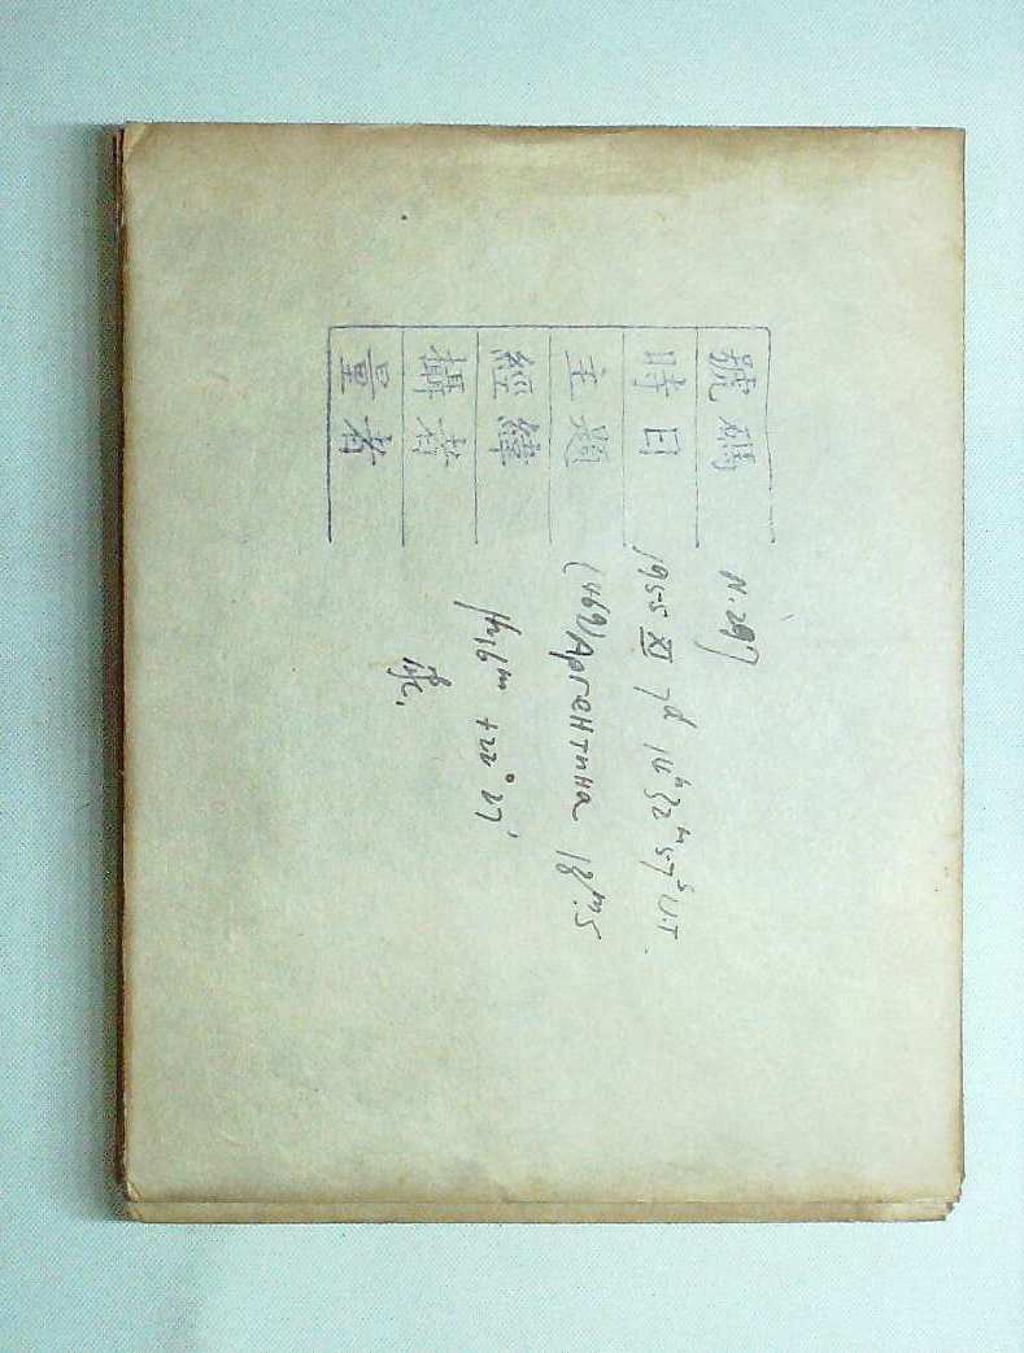 號碼 N. 297
時日 1955 XI 7d 14h32m57s U.T.
主題 (469) Аргентина 13m.5
經緯 +22° 27'
攝者
量者